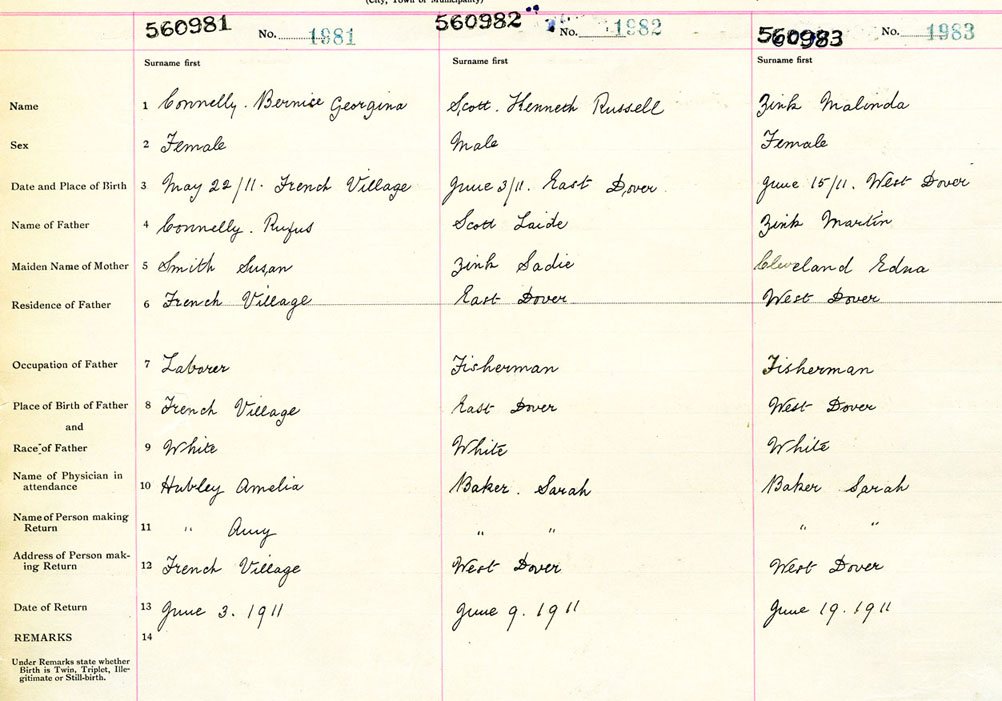 (City, Town or Municipality)
560981 No. 1981 560982 No. 1982 560983 No. 1983
Surname first Surname first Surname first
Name 1 Connelly. Bernice Georgina Scott. Kenneth Russell Zink Malinda
Sex 2 Female Male Female
Date and Place of Birth 3 May 22/11. French Village June 3/11. East Dover. June 15/11. West Dover
Name of Father 4 Connelly. Rufus Scott Laide Zink Martin
Maiden Name of Mother 5 Smith Susan Zink Sadie Cleveland Edna
Residence of Father 6 French Village East Dover West Dover
Occupation of Father 7 Laborer Fisherman Fisherman
Place of Birth of Father 8 French Village East Dover West Dover
and
Race of Father 9 White White White
Name of Physician in
attendance 10 Hubley Amelia Baker. Sarah Baker Sarah
Name of Person making
Return 11 " Amy " " " "
Address of Person mak-
ing Return 12 French Village West Dover West Dover
Date of Return 13 June 3. 1911 June 9. 1911 June 19. 1911
REMARKS 14
Under Remarks state whether
Birth is Twin, Triplet, Ille-
gitimate or Still-birth.